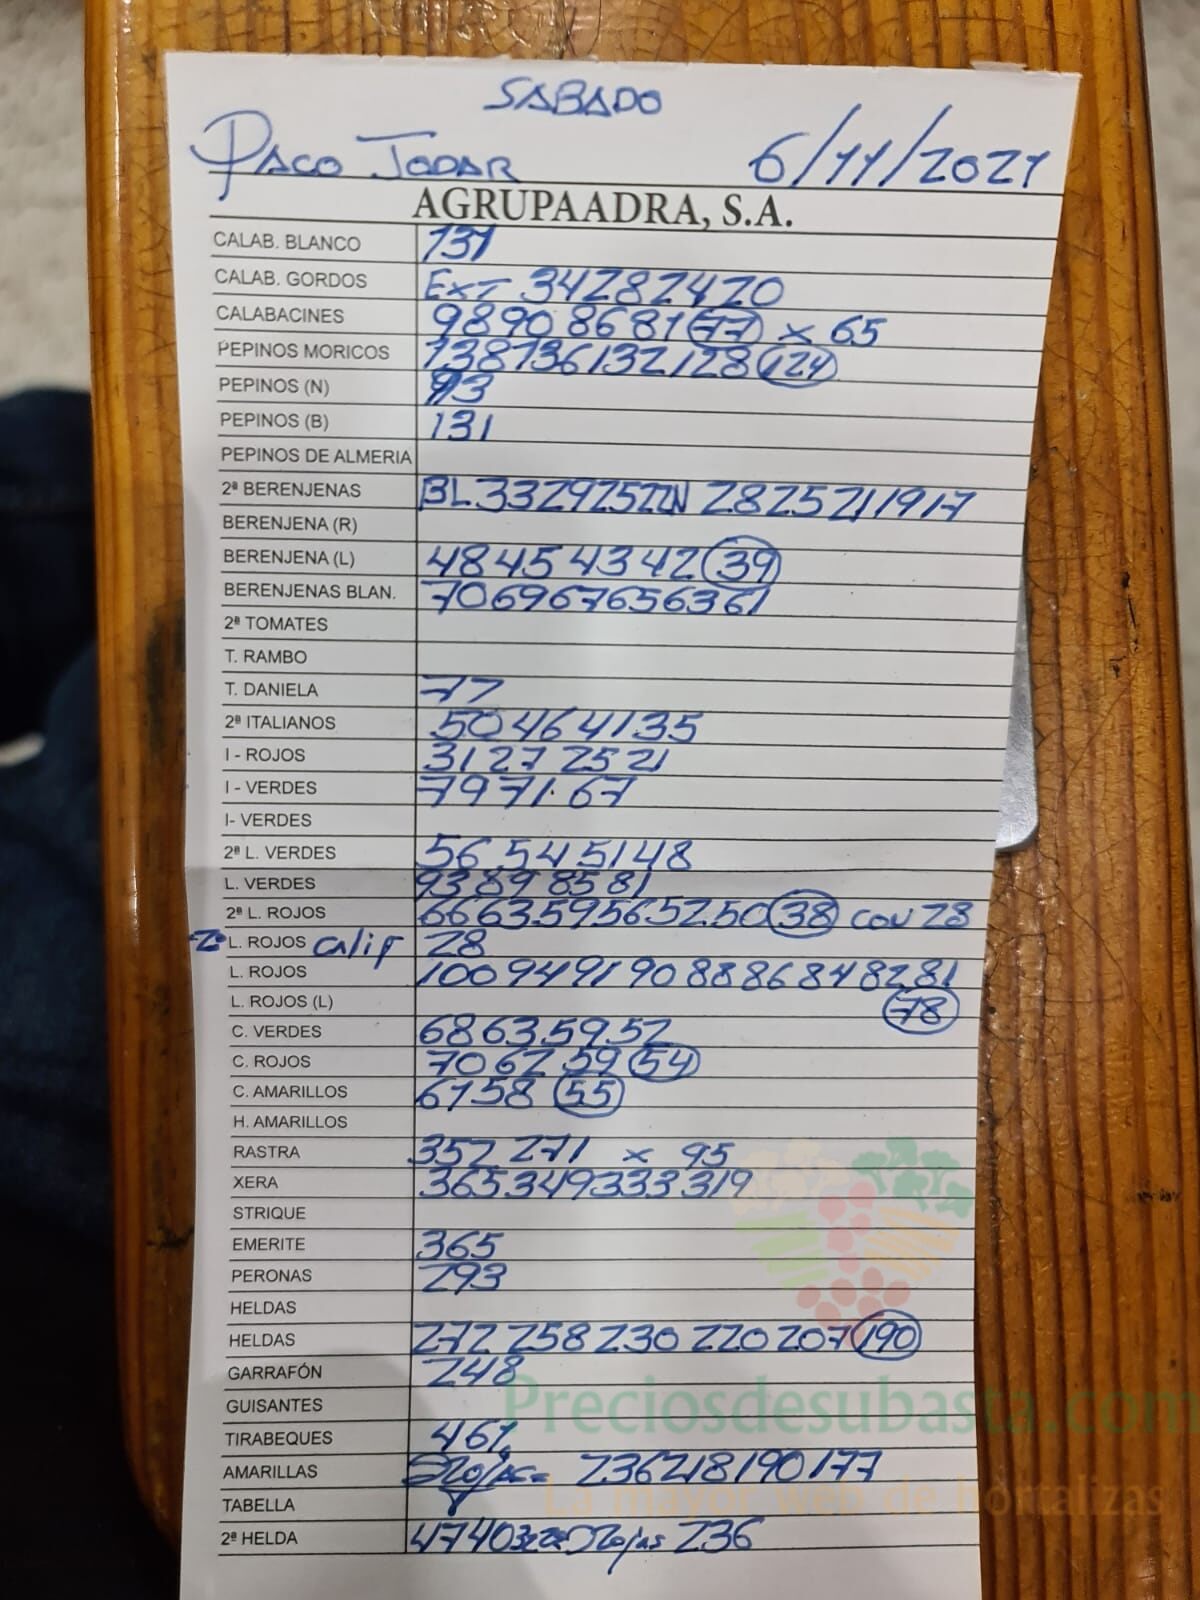 SABADO
PACO JODAR 6/11/2021
AGRUPAADRA, S.A.
CALAB. BLANCO 131
CALAB. GORDOS EXT 34 28 24 20
CALABACINES 98 90 86 81 77 x 65
PEPINOS MORICOS 138 136 132 128 124
PEPINOS (N) 93
PEPINOS (B) 131
PEPINOS DE ALMERIA
2ª BERENJENAS BL 33 29 25 22 N 28 25 21 19 17
BERENJENA (R)
BERENJENA (L) 48 45 43 42 39
BERENJENAS BLAN. 70 69 67 65 63 61
2ª TOMATES
T. RAMBO
T. DANIELA 77
2ª ITALIANOS 50 46 41 35
I - ROJOS 31 27 25 21
I - VERDES 79 71 67
I- VERDES
2ª L. VERDES 56 54 51 48
L. VERDES 93 89 85 81
2ª L. ROJOS 66 63 59 56 52 50 38 COU 28
2ª L. ROJOS Calif 28
L. ROJOS 100 94 91 90 88 86 84 82 81
L. ROJOS (L) 78
C. VERDES 68 63 59 52
C. ROJOS 70 62 59 54
C. AMARILLOS 67 58 55
H. AMARILLOS
RASTRA 352 271 x 95
XERA 365 349 333 319
STRIQUE
EMERITE 365
PERONAS 293
HELDAS
HELDAS 272 258 230 220 207 190
GARRAFÓN 248
GUISANTES
TIRABEQUES 461
AMARILLAS 236 218 190 177
TABELLA
2ª HELDA 47 40 Rojas 236
Preciosdesubasta.com
La mayor web de hortalizas